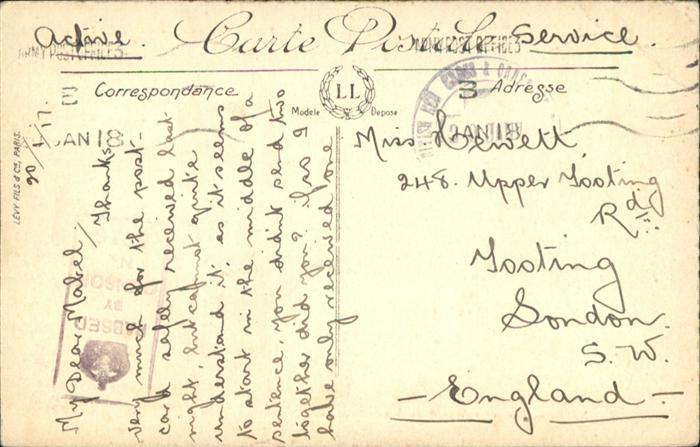 Active Carte Postale Service
ARMY POST OFFICES
ARMY POST OFFICES
Correspondance
LL
Modèle Déposé
3
Adresse
JAN 18
JAN 18
LÉVY FILS & Cie, PARIS.
20/1/17.
My Dear Mabel/ Thanks
very much for the post-
card safely received last
night, but cannot quite
understand it, as it seems
to start in the middle of a
sentence, you didn't send two
together did you? if so I
have only received one
PASSED
BY
CENSOR
Miss Hewett
248. Upper Tooting
Rd.
Tooting
London.
S.W.
- England -